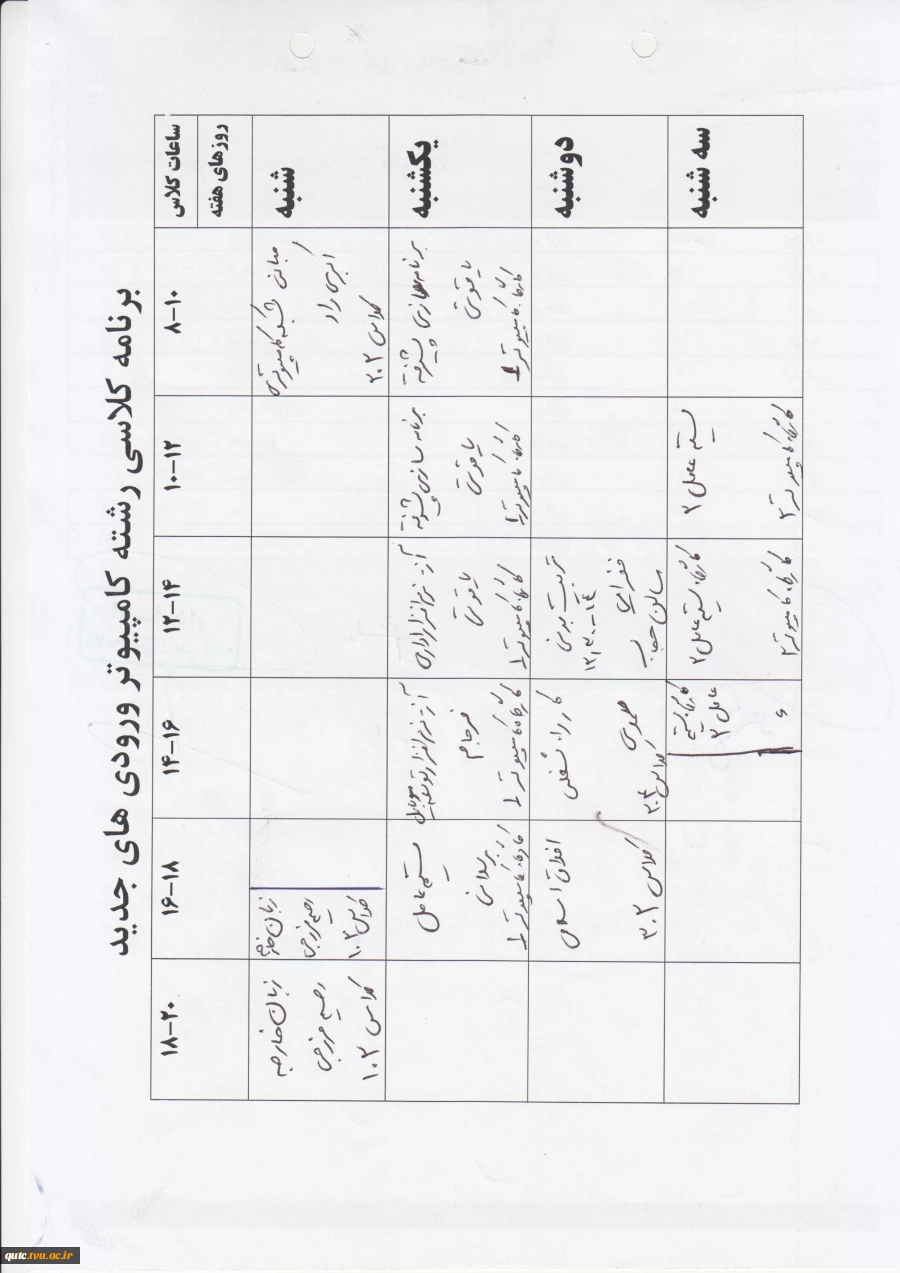 برنامه کلاسی رشته کامپیوتر ورودی های جدید
ساعات کلاس
روزهای هفته
۸-۱۰
۱۰-۱۲
۱۲-۱۴
۱۴-۱۶
۱۶-۱۸
۱۸-۲۰
شنبه
مبانی شبکه کامپیوتری
اکبری راد
کلاس ۲۰۲
زبان خارجه
کلاس ۱۰۲
زبان خارجه
کلاس ۱۰۲
یکشنبه
برنامه سازی پیشرفته
یاقوتی
کارگاه کامپیوتر ۱
برنامه سازی پیشرفته
یاقوتی
کارگاه کامپیوتر ۱
آز- نرم افزار اداری
یاقوتی
کارگاه کامپیوتر ۱
آز- نرم افزار توسعه موبایل
فرجام
کارگاه کامپیوتر ۱
سیستم عامل
کارگاه کامپیوتر ۱
دوشنبه
تربیت بدنی
۱۲,۳۰-۱۴
سالن حجاب
کلاس ۲۰۳
اخلاق اسلامی
کلاس ۳۰۲
سه شنبه
سیستم عامل ۲
کارگاه کامپیوتر ۲
کارگاه سیستم عامل ۲
کارگاه کامپیوتر ۲
کارگاه سیستم
عامل ۲
qutc.tvu.ac.ir